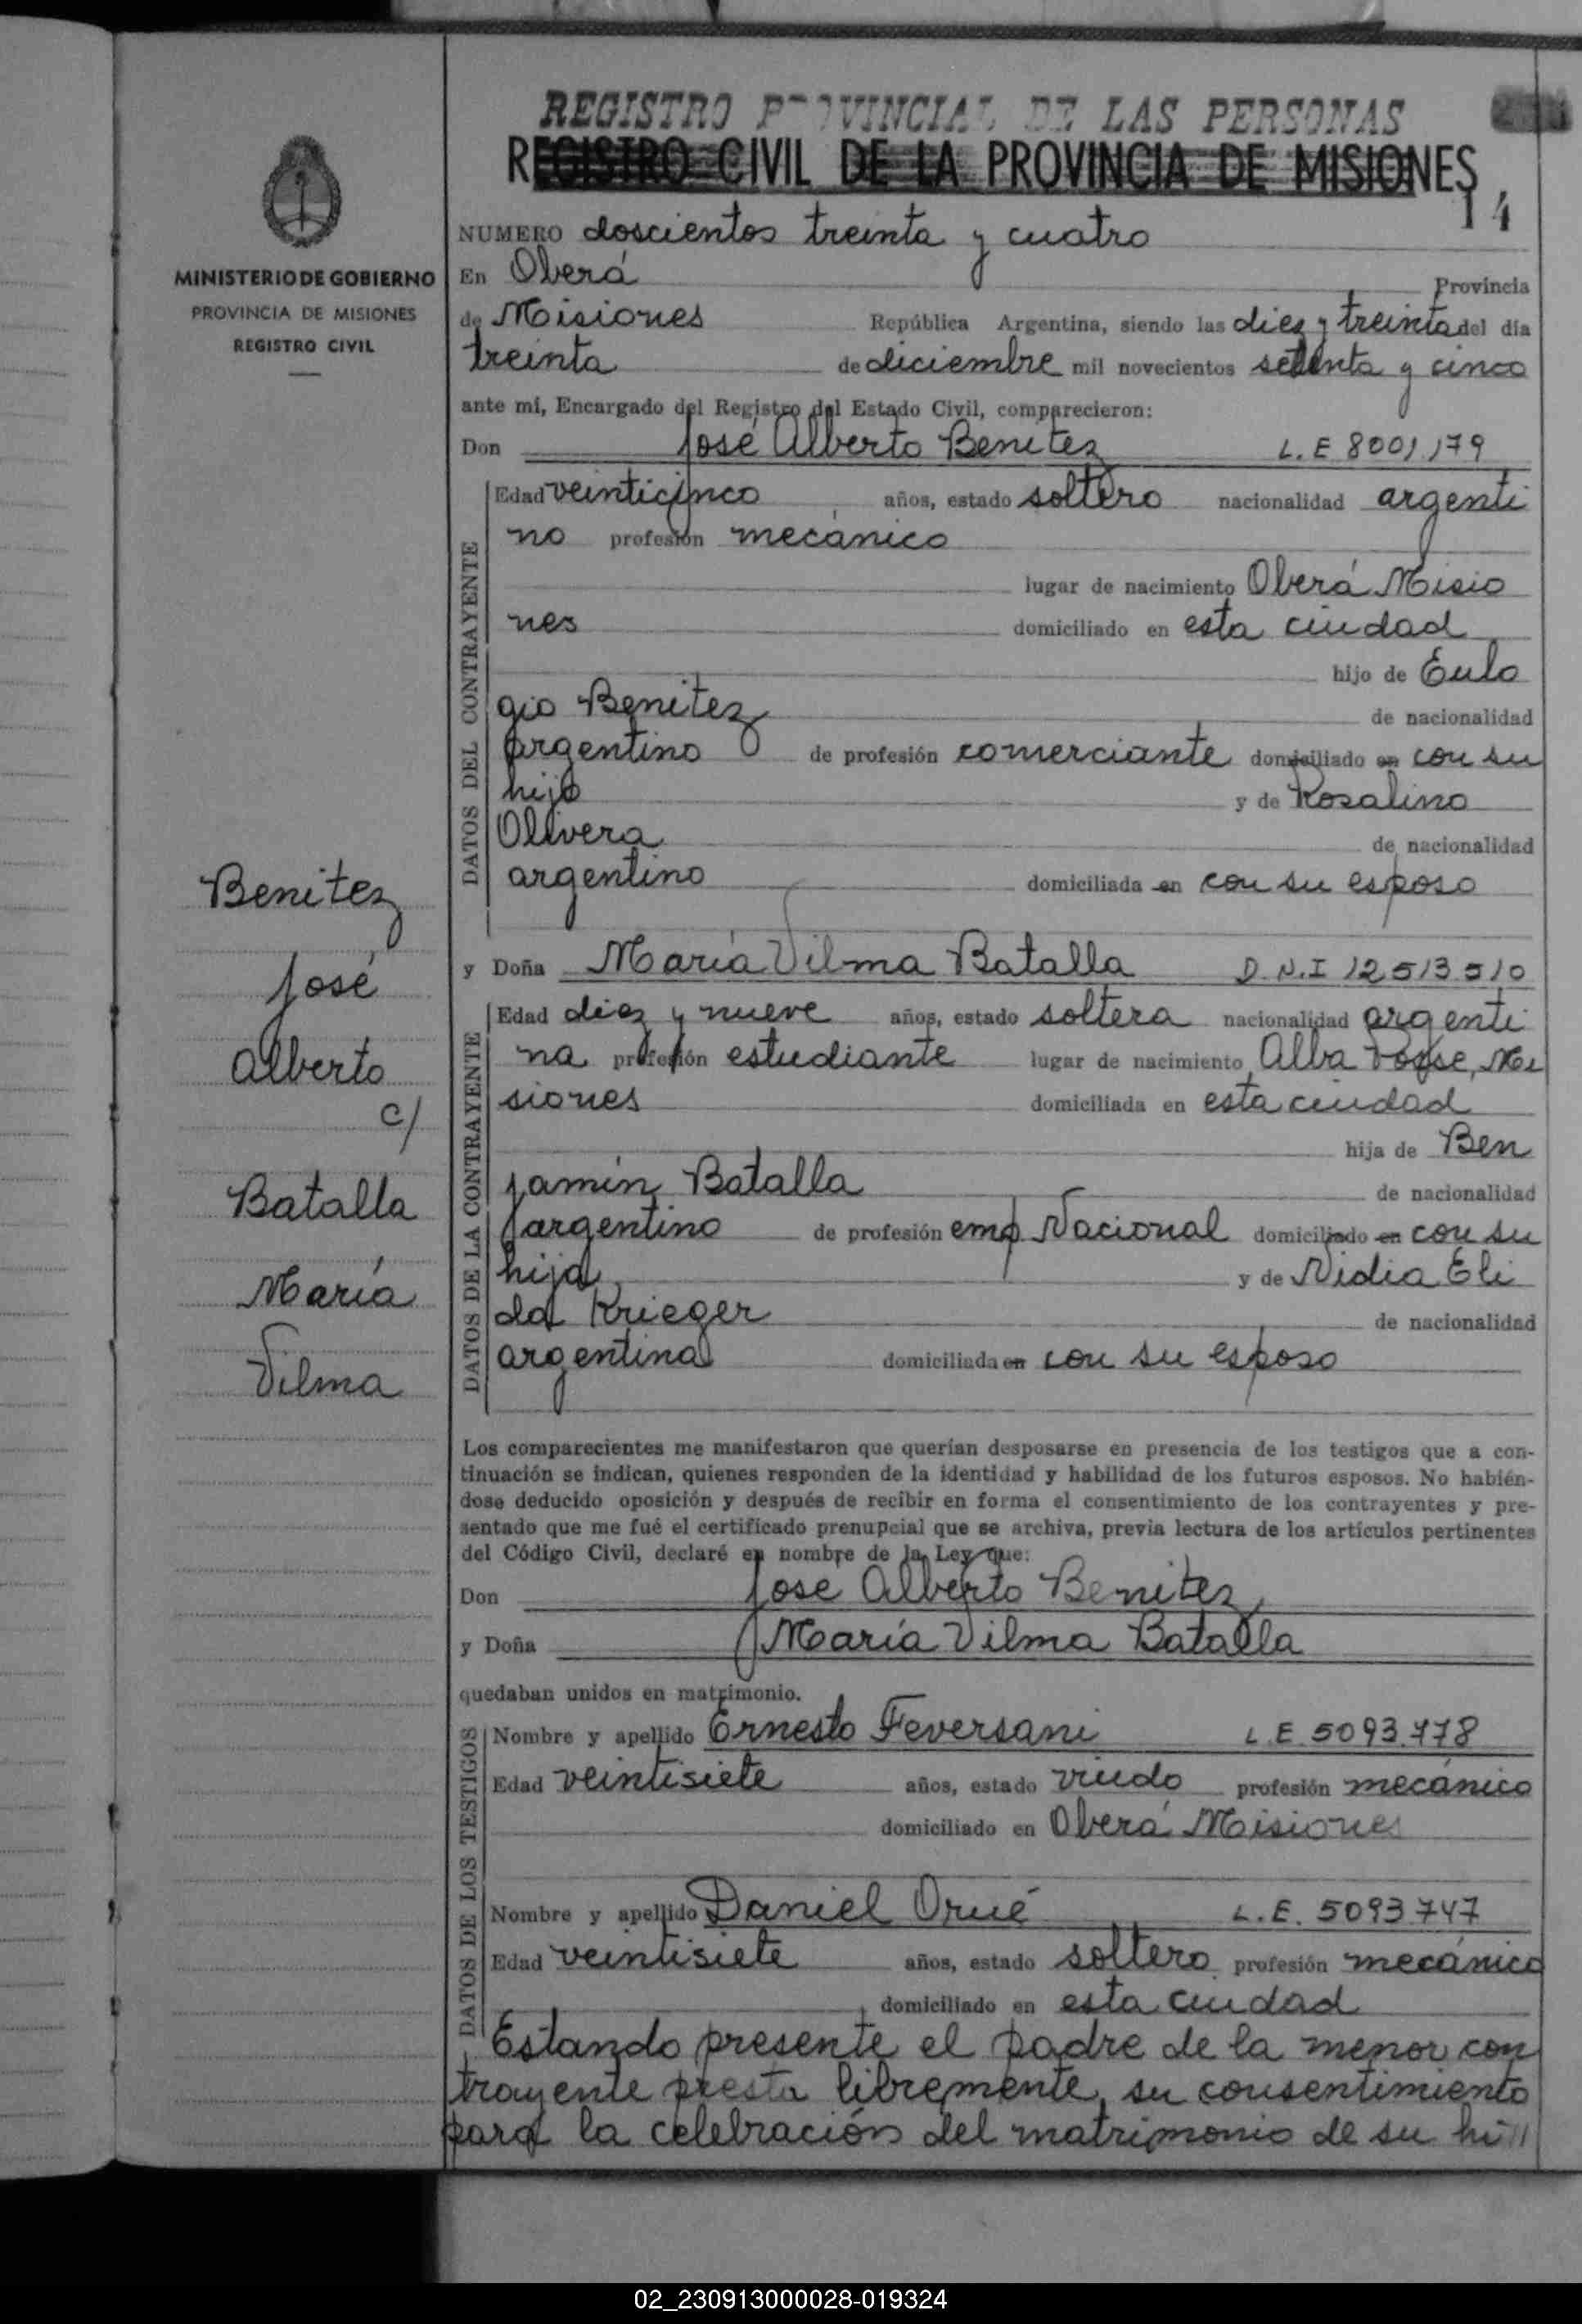 REGISTRO PROVINCIAL DE LAS PERSONAS
REGISTRO CIVIL DE LA PROVINCIA DE MISIONES
14
MINISTERIO DE GOBIERNO
PROVINCIA DE MISIONES
REGISTRO CIVIL
Benitez
José
Alberto
c/
Batalla
María
Vilma
NUMERO doscientos treinta y cuatro
En Oberá Provincia
de Misiones República Argentina, siendo las diez y treinta del día
treinta de diciembre mil novecientos setenta y cinco
ante mí, Encargado del Registro del Estado Civil, comparecieron:
Don José Alberto Benitez L.E 8001.179
DATOS DEL CONTRAYENTE
Edad veinticinco años, estado soltero nacionalidad argenti
no profesión mecánico
lugar de nacimiento Oberá Misio
nes domiciliado en esta ciudad
hijo de Eulo
gio Benitez de nacionalidad
argentino de profesión comerciante domiciliado en con su
hijo y de Rosalino
Olivera de nacionalidad
argentino domiciliada en con su esposo
y Doña María Vilma Batalla D.N.I 12513510
DATOS DE LA CONTRAYENTE
Edad diez y nueve años, estado soltera nacionalidad argenti
na profesión estudiante lugar de nacimiento Alba Posse, Mi
siones domiciliada en esta ciudad
hija de Ben
jamín Batalla de nacionalidad
argentino de profesión emp Nacional domiciliado en con su
hija y de Nidia Eli
da Krieger de nacionalidad
argentina domiciliada en con su esposo
Los comparecientes me manifestaron que querían desposarse en presencia de los testigos que a con-
tinuación se indican, quienes responden de la identidad y habilidad de los futuros esposos. No habién-
dose deducido oposición y después de recibir en forma el consentimiento de los contrayentes y pre-
sentado que me fué el certificado prenupcial que se archiva, previa lectura de los artículos pertinentes
del Código Civil, declaré en nombre de la Ley que:
Don José Alberto Benitez
y Doña María Vilma Batalla
quedaban unidos en matrimonio.
DATOS DE LOS TESTIGOS
Nombre y apellido Ernesto Feversani L.E 5093.778
Edad veintisiete años, estado viudo profesión mecánico
domiciliado en Oberá Misiones
Nombre y apellido Daniel Orué L.E. 5093747
Edad veintisiete años, estado soltero profesión mecánico
domiciliado en esta ciudad
Estando presente el padre de la menor con
trayente presta libremente su consentimiento
para la celebración del matrimonio de su hi//
02_230913000028-019324